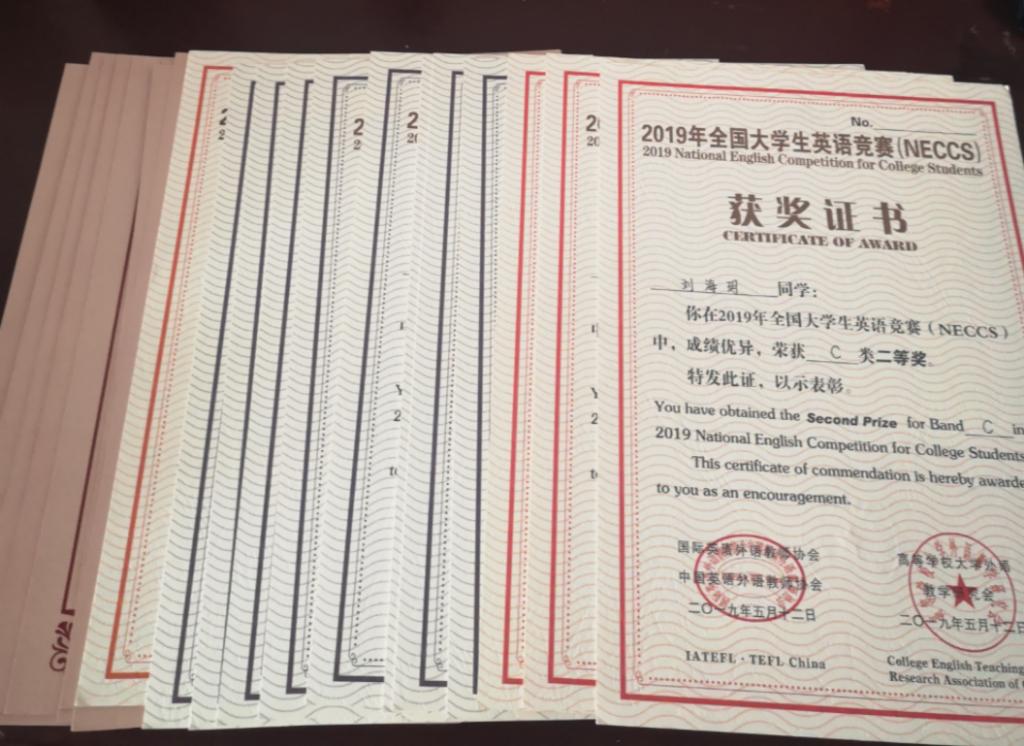 No.
2019年全国大学生英语竞赛(NECCS)
2019 National English Competition for College Students
获奖证书
CERTIFICATE OF AWARD
刘海玥 同学:
你在2019年全国大学生英语竞赛(NECCS)
中,成绩优异,荣获 C 类二等奖。
特发此证,以示表彰。
You have obtained the Second Prize for Band C in
2019 National English Competition for College Students
This certificate of commendation is hereby awarde
to you as an encouragement.
国际英语外语教师协会
中国英语外语教师协会
二〇一九年五月十二日
IATEFL · TEFL China
高等学校大学外语
教学研究会
二〇一九年五月十二日
College English Teaching
Research Association of